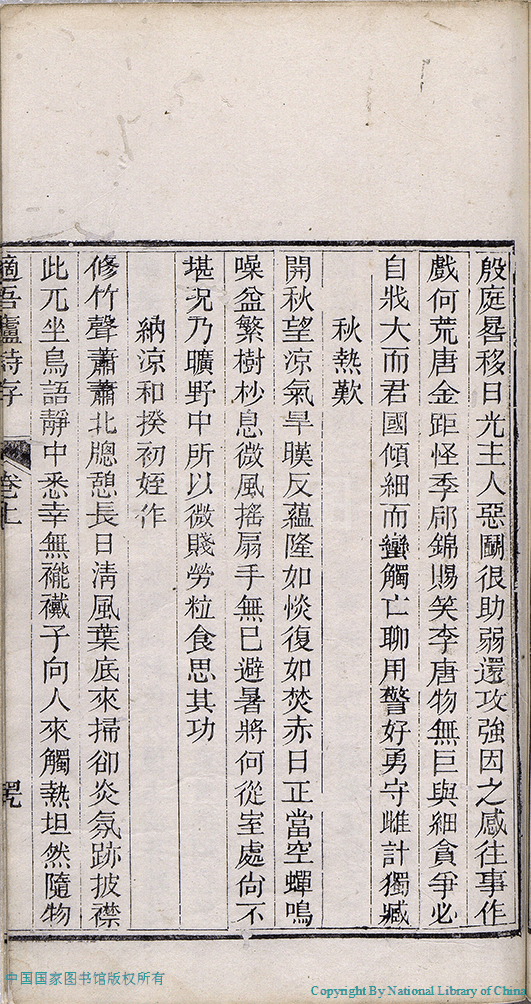 殷庭晷移日光主人惡鬭很助弱還攻強因之感往事作
戲何荒唐金距怪季郈錦賜笑李唐物無巨與細貪爭必
自戕大而君國傾細而蠻觸亡聊用警好勇守雌計獨臧
秋熱歎
開秋望涼氣旱暵反蘊隆如惔復如焚赤日正當空蟬鳴
噪益繁樹杪息微風搖扇手無已避暑將何從室處尙不
堪況乃曠野中所以微賤勞粒食思其功
納涼和揆初姪作
修竹聲蕭蕭北牕憩長日淸風葉底來掃卻炎氛跡披襟
此兀坐鳥語靜中悉幸無褦襶子向人來觸熱坦然隨物
適吾廬詩存 卷上
中国国家图书馆版权所有
Copyright By National Library of China